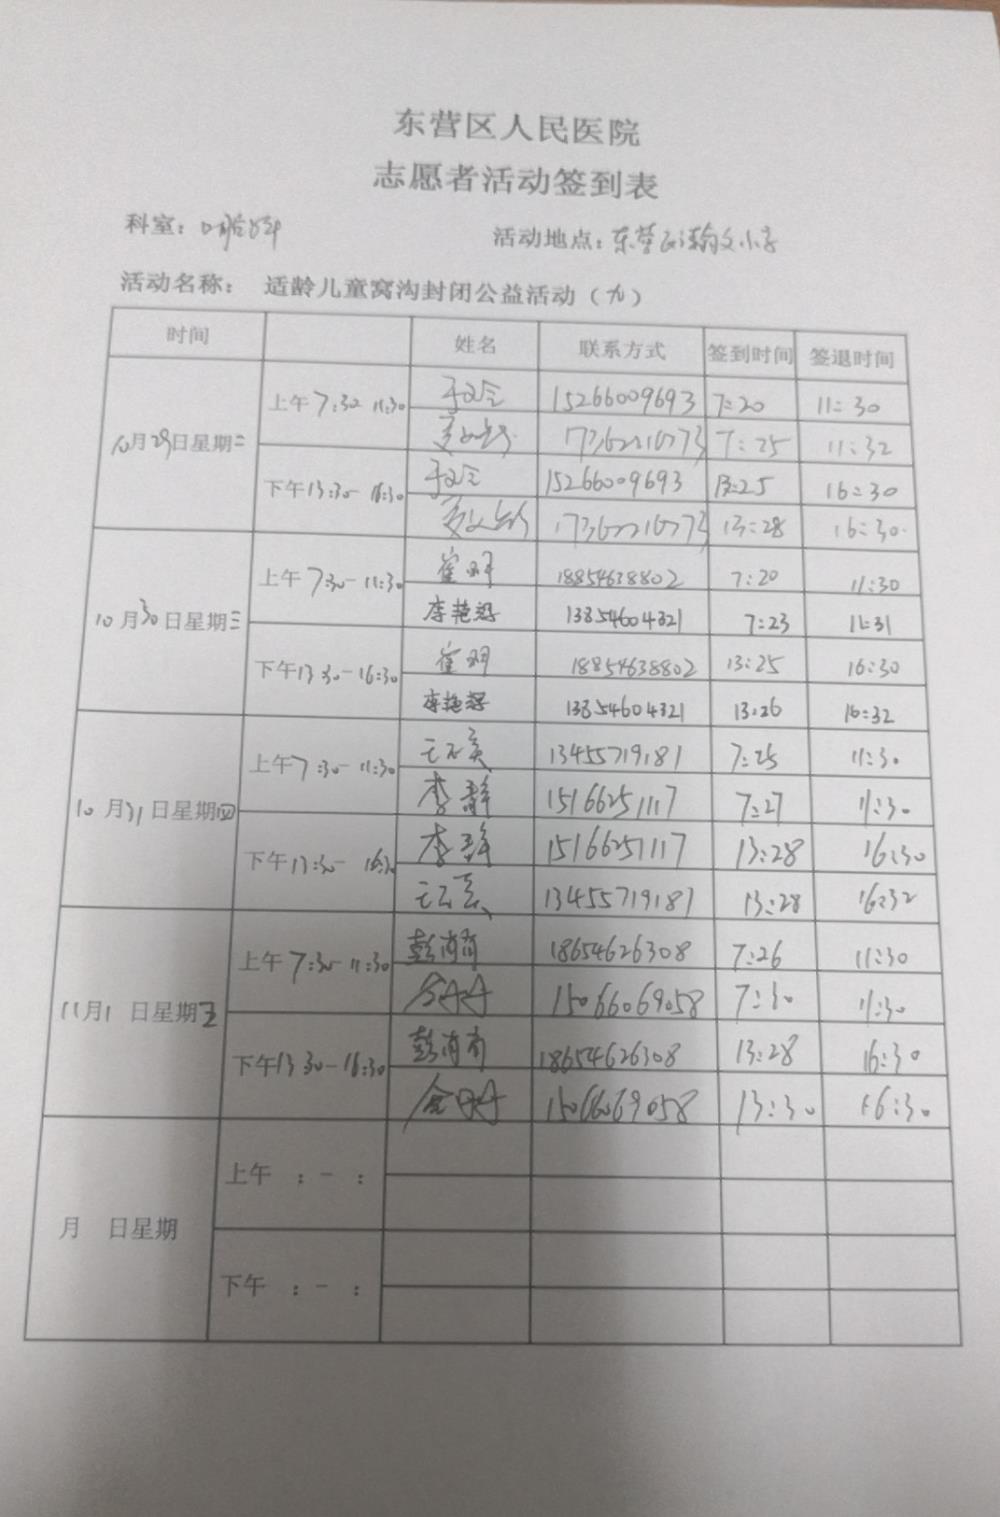 东营区人民医院
志愿者活动签到表
科室：口腔科 活动地点：东营区瀚文小学
活动名称： 适龄儿童窝沟封闭公益活动（九）
时间 姓名 联系方式 签到时间 签退时间
10月29日星期二 上午7:30 11:30 15266009693 7:20 11:30
7:25 11:32
下午13:30-16:30 15266009693 13:25 16:30
13:28 16:30
10月30日星期三 上午7:30-11:30 崔 18854638802 7:20 11:30
李艳 13854604321 7:23 11:31
下午13:30-16:30 崔 18854638802 13:25 16:30
李艳 13854604321 13:26 16:32
10月31日星期四 上午7:30-11:30 13455719181 7:25 11:30
李静 15166251117 7:27 11:30
下午13:30- 16:30 李静 15166251117 13:28 16:30
13455719181 13:28 16:32
11月1日星期五 上午7:30-11:30 彭 18654626308 7:26 11:30
15066069058 7:30 11:30
下午13 30-16:30 彭 18654626308 13:28 16:30
15066069058 13:30 16:30
月 日星期 上午 ：－ ：
下午 ：－ ：